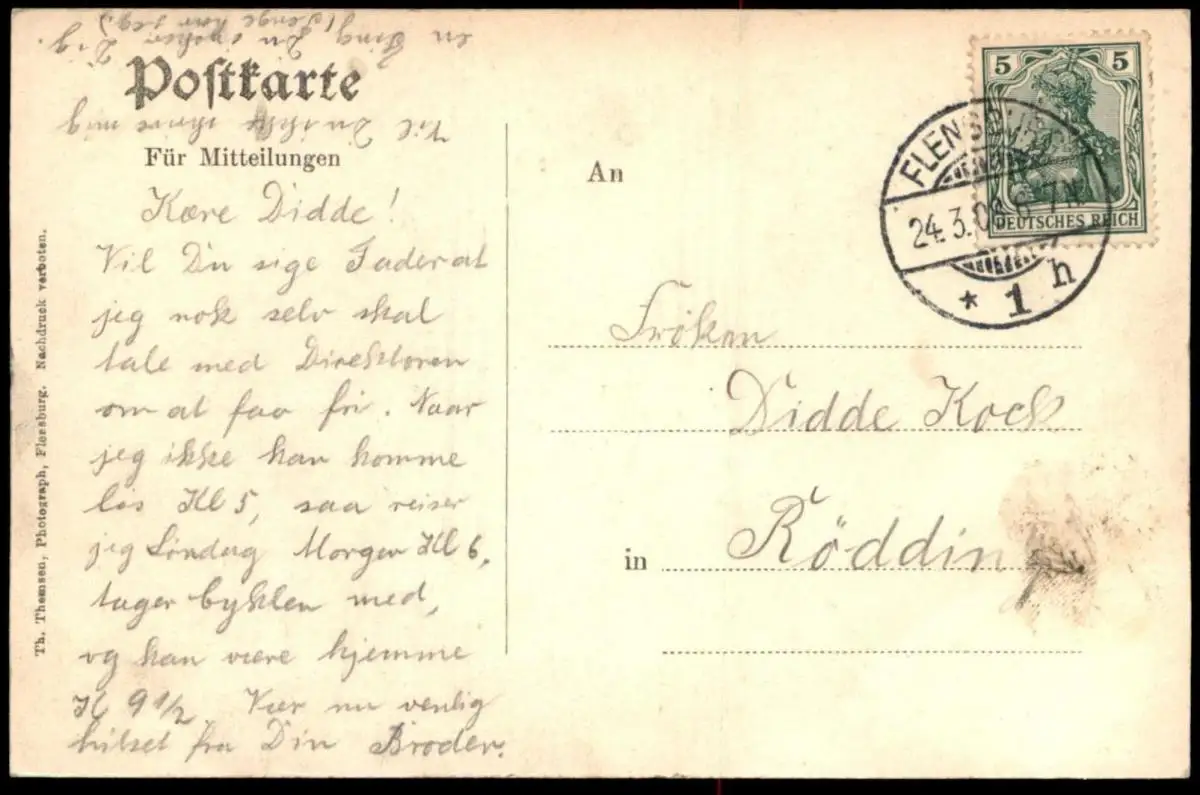 Postkarte
Für Mitteilungen
Kære Didde!
Vil Du sige Fader at
jeg nok selv skal
tale med Direktoren
om at faa fri. Naar
jeg ikke kan komme
løs Kl 5, saa reiser
jeg Søndag Morgen Kl 6,
tager byklen med,
og kan være hjemme
Kl 9 1/2. Vær nu venlig
hilset fra Din Broder.
Vil Du ikke skrive mig
en Ting Du ønsker Dig.
Th. Thomsen, Photograph, Flensburg. Nachdruck verboten.
5 5
DEUTSCHES REICH
FLENSBURG
24.3.08 6-7N
* 1 h
An
Fröken
Didde Kock
in Röddin